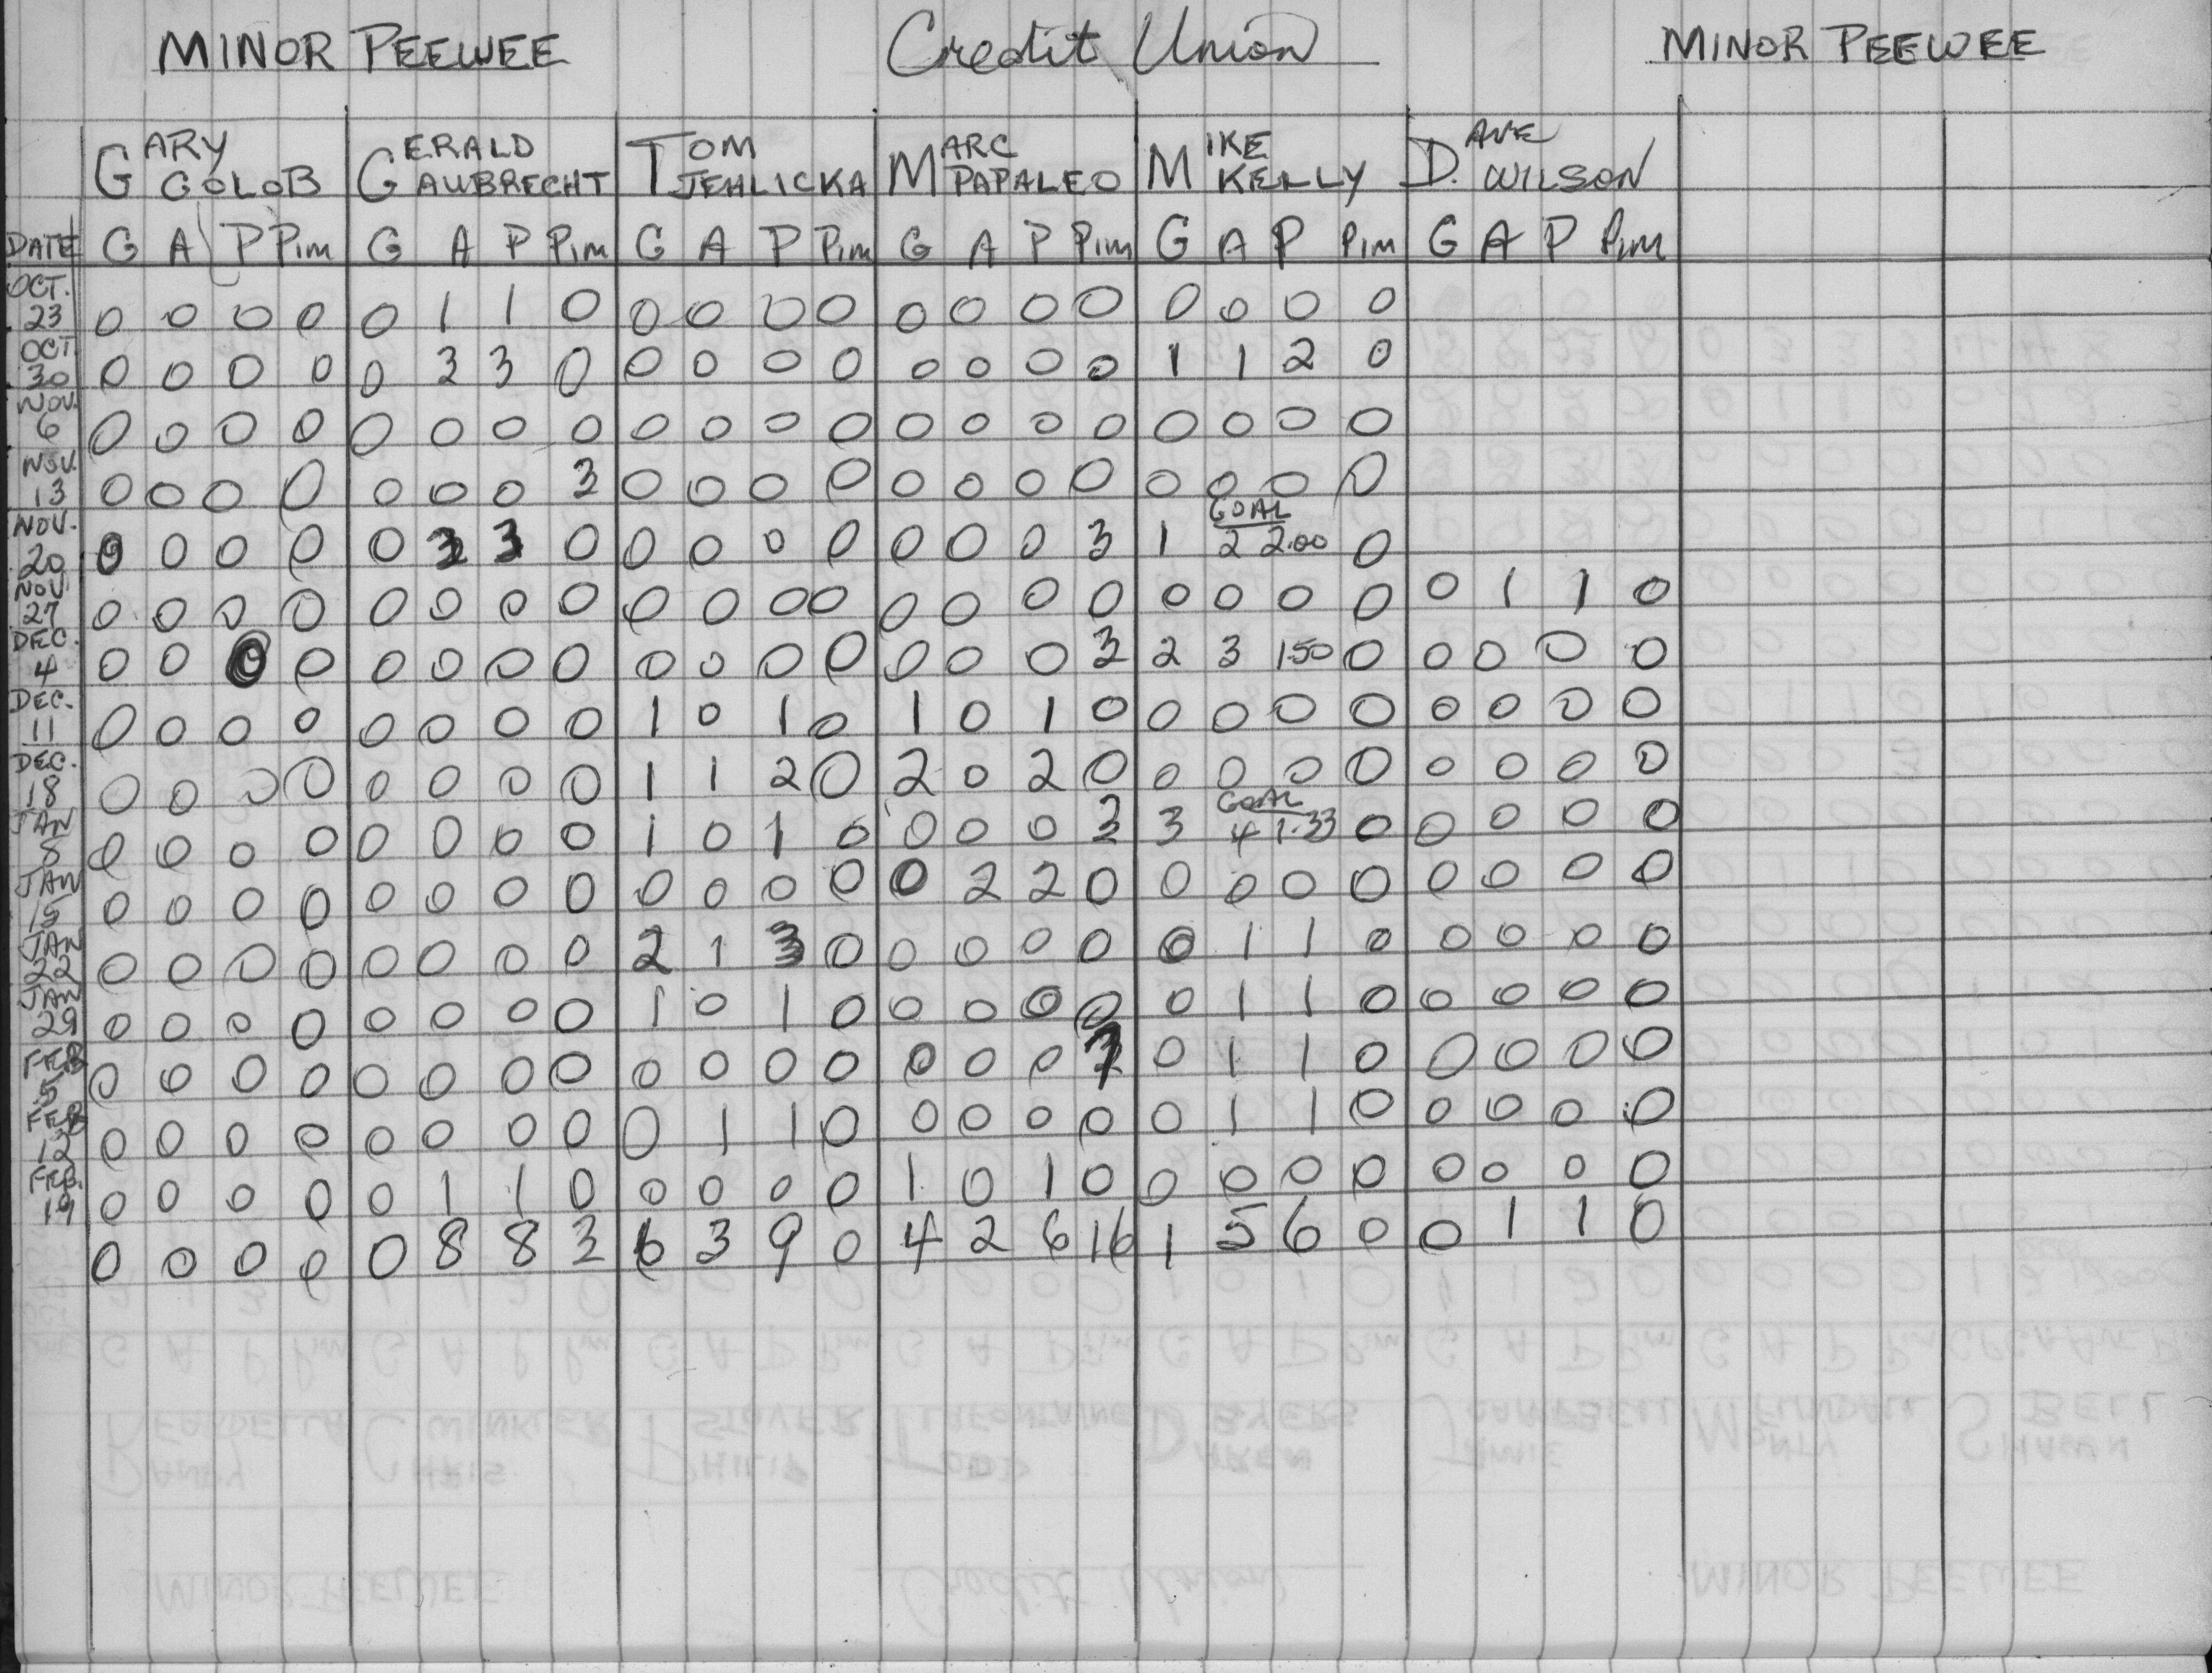 MINOR PEEWEE Credit Union MINOR PEEWEE
GARY GOLOB GERALD AUBRECHT TOM JEHLICKA MARC PAPALEO MIKE KELLY DAVE WILSON
DATE G A P Pim G A P Pim G A P Pim G A P Pim G A P Pim G A P Pim
OCT. 23 0 0 0 0 0 1 1 0 0 0 0 0 0 0 0 0 0 0 0 0
OCT 30 0 0 0 0 0 3 3 0 0 0 0 0 0 0 0 0 1 1 2 0
NOV. 6 0 0 0 0 0 0 0 0 0 0 0 0 0 0 0 0 0 0 0 0
NOV. 13 0 0 0 0 0 0 0 3 0 0 0 0 0 0 0 0 0 0 0 0
NOV. 20 0 0 0 0 0 3 3 0 0 0 0 0 0 0 0 3 1 GOAL 2 2.00 0
NOV 27 0 0 0 0 0 0 0 0 0 0 0 0 0 0 0 0 0 0 0 0 0 1 1 0
DEC. 4 0 0 0 0 0 0 0 0 0 0 0 0 0 0 0 3 2 3 1.50 0 0 0 0 0
DEC. 11 0 0 0 0 0 0 0 0 1 0 1 0 1 0 1 0 0 0 0 0 0 0 0 0
DEC. 18 0 0 0 0 0 0 0 0 1 1 2 0 2 0 2 0 0 0 0 0 0 0 0 0
JAN 8 0 0 0 0 0 0 0 0 1 0 1 0 0 0 0 3 3 GOAL 4 1.33 0 0 0 0 0
JAN 15 0 0 0 0 0 0 0 0 0 0 0 0 0 2 2 0 0 0 0 0 0 0 0 0
JAN 22 0 0 0 0 0 0 0 0 2 1 3 0 0 0 0 0 0 1 1 0 0 0 0 0
JAN 29 0 0 0 0 0 0 0 0 1 0 1 0 0 0 0 0 0 1 1 0 0 0 0 0
FEB 5 0 0 0 0 0 0 0 0 0 0 0 0 0 0 0 7 0 1 1 0 0 0 0 0
FEB 12 0 0 0 0 0 0 0 0 0 1 1 0 0 0 0 0 0 1 1 0 0 0 0 0
FEB. 19 0 0 0 0 0 1 1 0 0 0 0 0 1 0 1 0 0 0 0 0 0 0 0 0
0 0 0 0 0 8 8 3 6 3 9 0 4 2 6 16 1 5 6 0 0 1 1 0